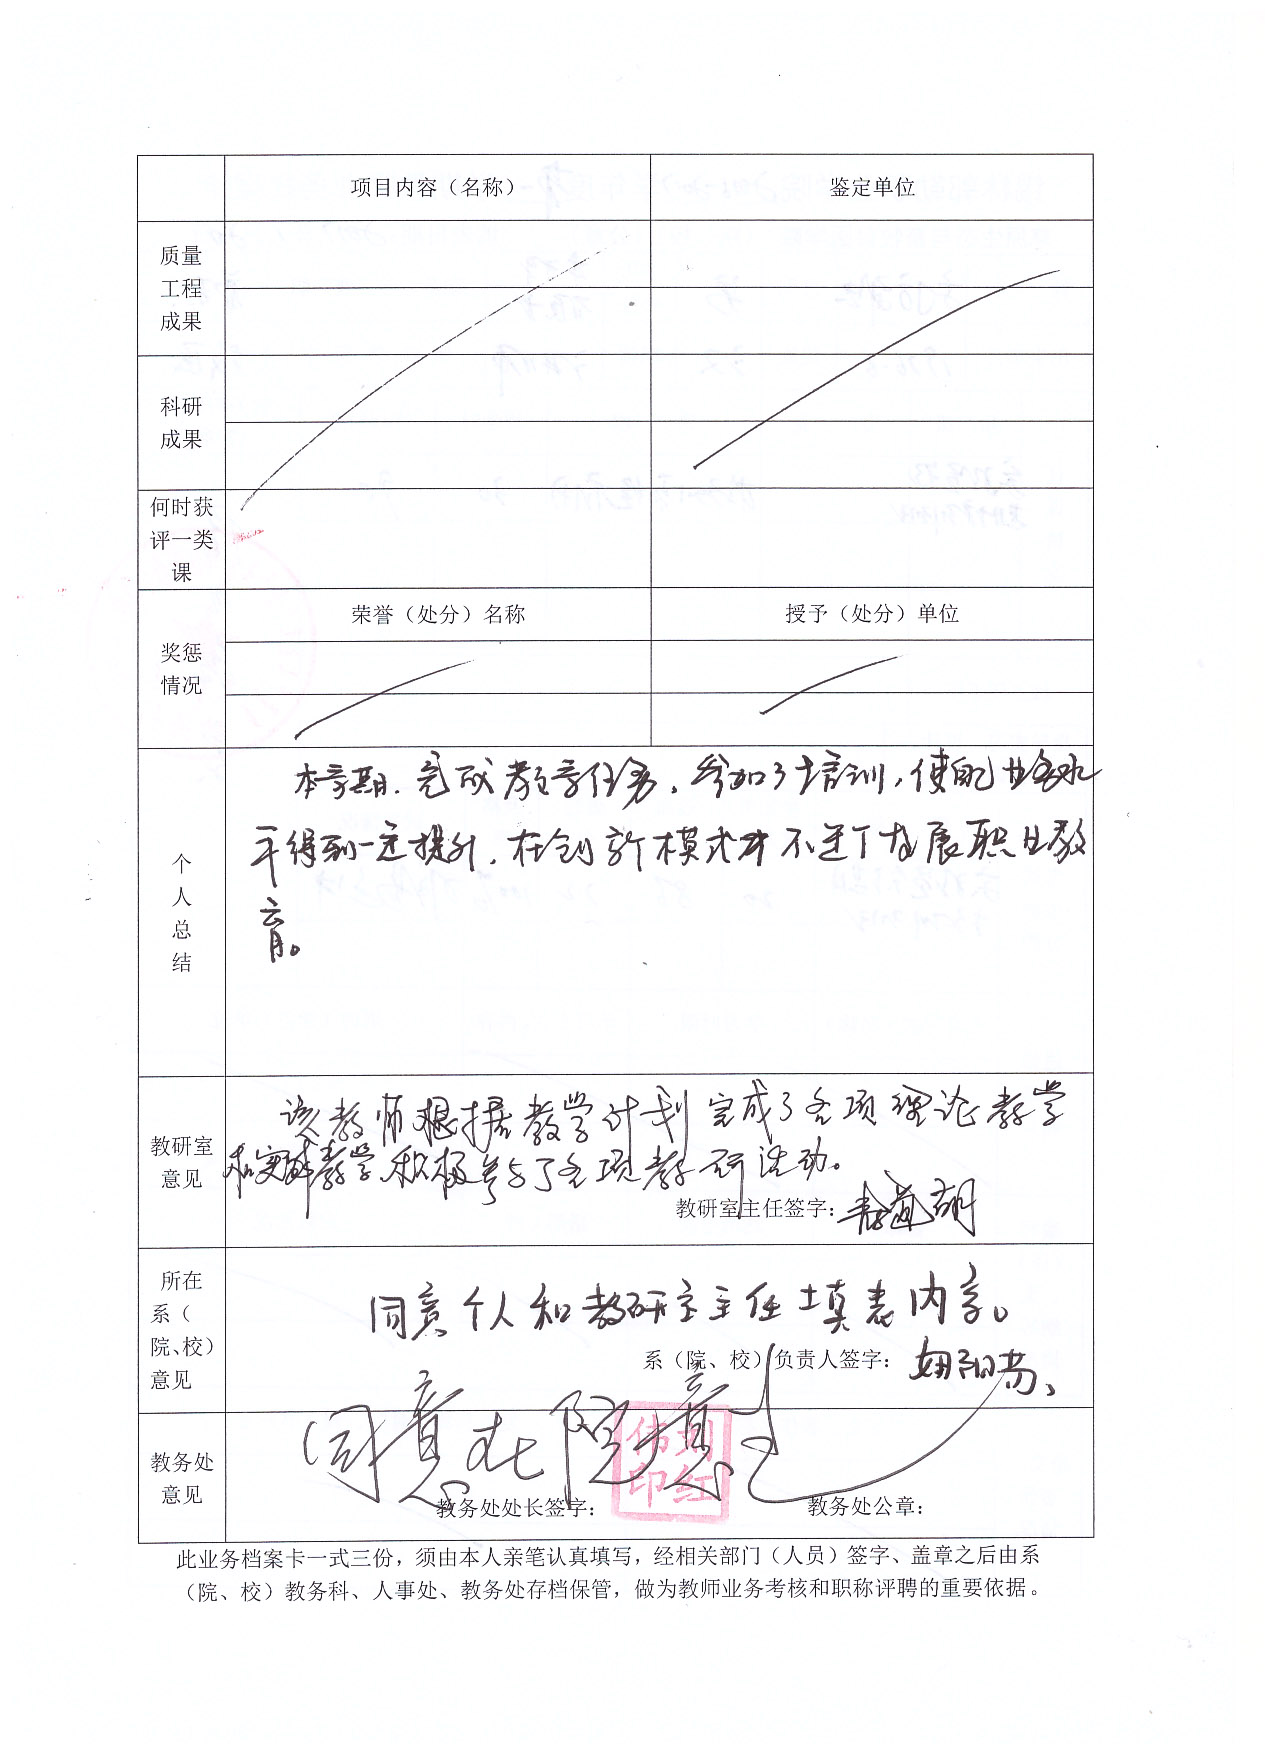 项目内容（名称）
鉴定单位
质量
工程
成果
科研
成果
何时获
评一类
课
奖惩
情况
荣誉（处分）名称
授予（处分）单位
个
人
总
结
本学期.完成教学任务，参加了培训，使自己业务水
平得到一定提升，在创新模式中不断发展职业教
育。
教研室
意见
该教师根据教学计划完成了各项理论教学
和实践教学，积极参与了各项教研活动。
教研室主任签字：
所在
系（
院、校）
意见
同意个人和教研室主任填表内容。
系（院、校）负责人签字：
教务处
意见
同意在院意
刘红伟印
教务处处长签字：
教务处公章：
此业务档案卡一式三份，须由本人亲笔认真填写，经相关部门（人员）签字、盖章之后由系
（院、校）教务科、人事处、教务处存档保管，做为教师业务考核和职称评聘的重要依据。